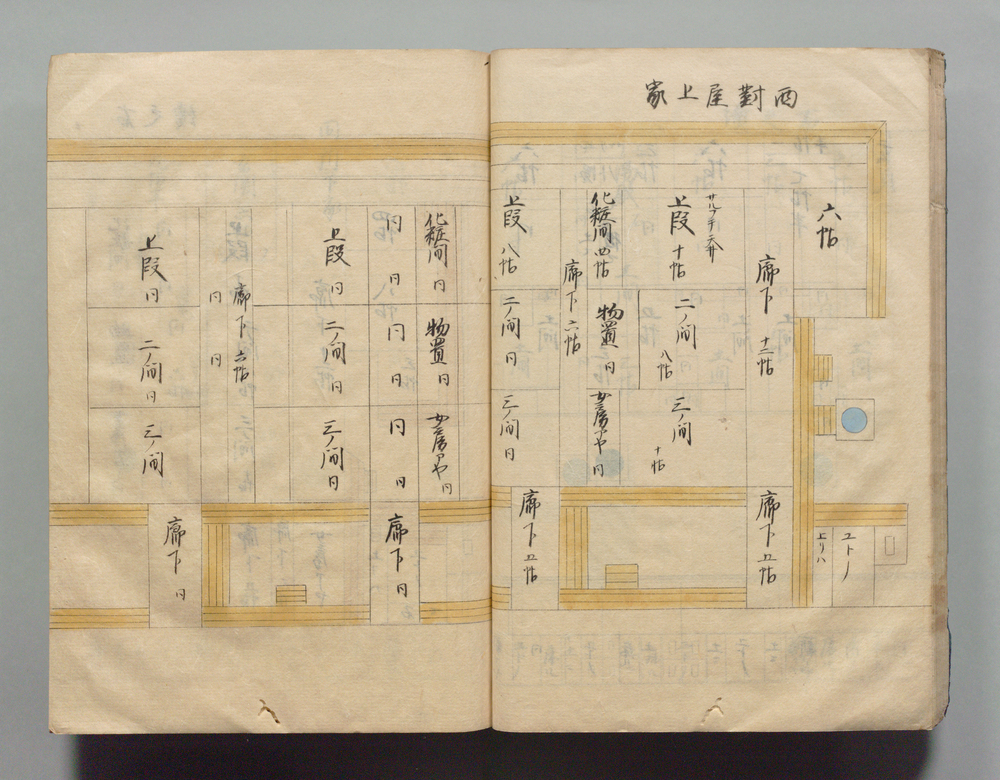 西對屋上家
六帖
廊下 十二帖
廊下 五帖
ユトノ
上リハ
サルフチ天井
上段 十帖
二ノ間 八帖
三ノ間 十帖
化粧間 四帖
物置 円
女房部ヤ 円
廊下 六帖
上段 八帖
二ノ間 円
三ノ間 円
廊下 五帖
化粧間 円
物置 円
女房部ヤ 円
円 円
円 円
円 円
廊下 円
上段 円
二ノ間 円
三ノ間 円
廊下 六帖
円 円
上段 円
二ノ間 円
三ノ間
廊下 円